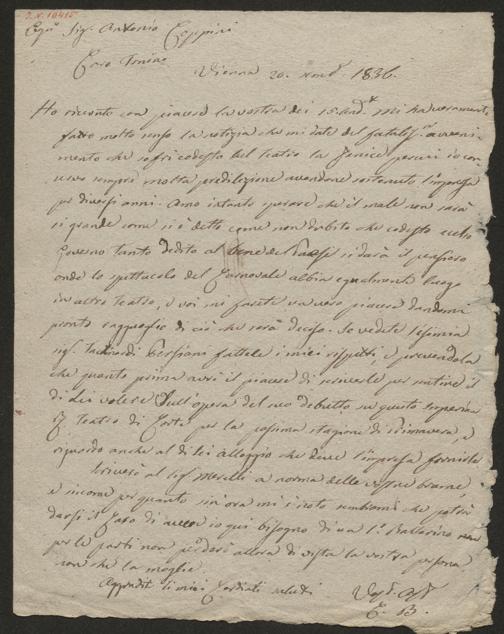 I.N. 10415
Sig. Antonio Coppini
Caro Tonino
Vienna 20. 1836.
Ho ricevuto con piacere la vostra dei 15. And.te mi ha veramente
fatto molto senso la notizia che mi date del avveni-
mento che soffrì codesto bel teatro la Fenice per cui io con-
servo sempre molta predilezione avendone sostenuto l'impresa
per diversi anni. Amo intanto sperare che il male non sarà
sì grande come si è detto come non dubito che codesto eccelso
Governo tanto dedito al bene dei si darà il pensiero
onde lo spettacolo del Carnovale abbia egualmente luogo
in altro teatro, e voi mi farete vero piacere dandomi
pronto ragguaglio di ciò che sarà deciso. Se vedete l'esimia
sig.ra Tachinardi Persiani fattele i miei rispetti e prevenitela
che quanto prima avrò il piacere di scriverle per sentire il
di lei volere sull'opera del suo debutto su questo
teatro di Corte per la prossima stagione di Primavera, e
riguardo anche al di lei alloggio che deve l'impresa fornirle
Scrissi al Sig.r Merelli a norma delle vostre brame,
e siccome per quanto sin'ora mi è noto sembrami che potrà
darsi il caso di aver io qui bisogno di un 1.o Ballerino
per le parti non perderò allora di vista la vostra persona
non che la moglie.
Aggradite i miei cordiali saluti
E. B.